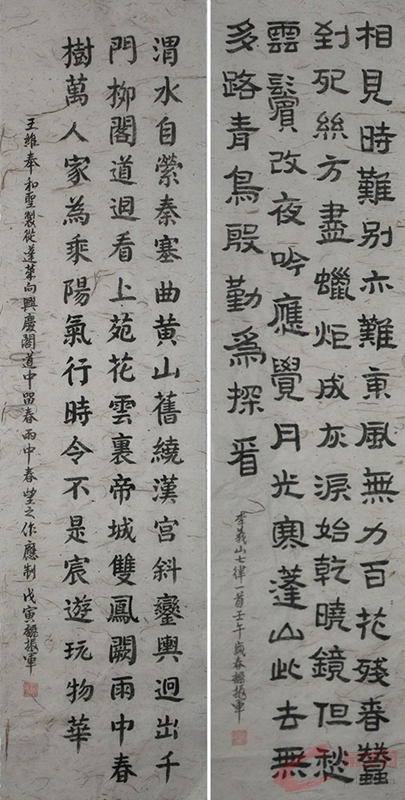 相見時難別亦難東風無力百花殘春蠶
到死絲方盡蠟炬成灰淚始乾曉鏡但愁
雲鬢改夜吟應覺月光寒蓬山此去無
多路青鳥殷勤為探看
李義山七律一首壬午歲春振軍
渭水自縈秦塞曲黃山舊繞漢宮斜鑾輿迥出千
門柳閣道迴看上苑花雲裏帝城雙鳳闕雨中春
樹萬人家為乘陽氣行時令不是宸遊玩物華
王維奉和聖製從蓬萊向興慶閣道中留春雨中春望之作應制戊寅振軍